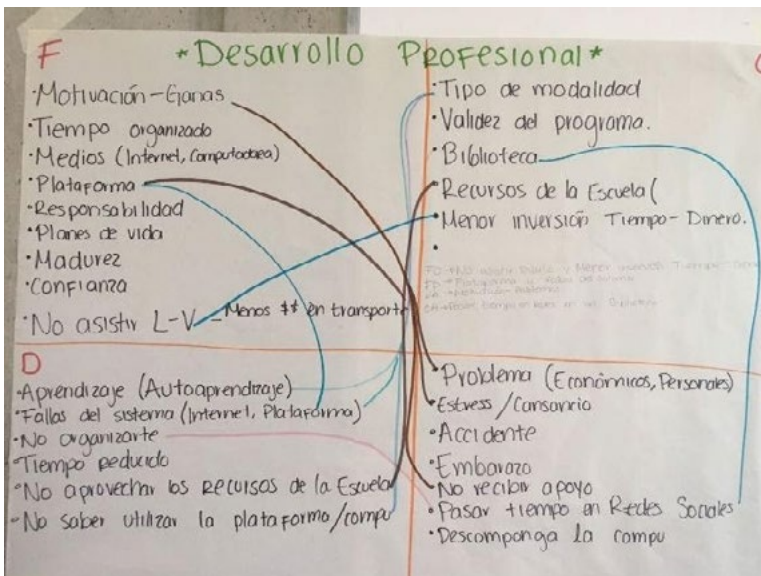 F
*Desarrollo Profesional*
·Motivación-Ganas
·Tiempo organizado
·Medios (Internet, Computadora)
·Plataforma
·Responsabilidad
·Planes de vida
·Madurez
·Confianza
·No asistir L-V - Menos $$ en transporte
·Tipo de modalidad
·Validez del programa.
·Biblioteca
·Recursos de la Escuela (
·Menor inversión Tiempo-Dinero.
D
·Aprendizaje (Autoaprendizaje)
·Fallas del sistema (Internet, Plataforma)
·No organizarte
·Tiempo reducido
·No aprovechar los recursos de la Escuela
·No saber utilizar la plataforma/compu
·Problema (Económicos, Personales)
·Estress/Cansancio
·Accidente
·Embarazo
·No recibir apoyo
·Pasar tiempo en Redes Sociales
·Descomponga la compu